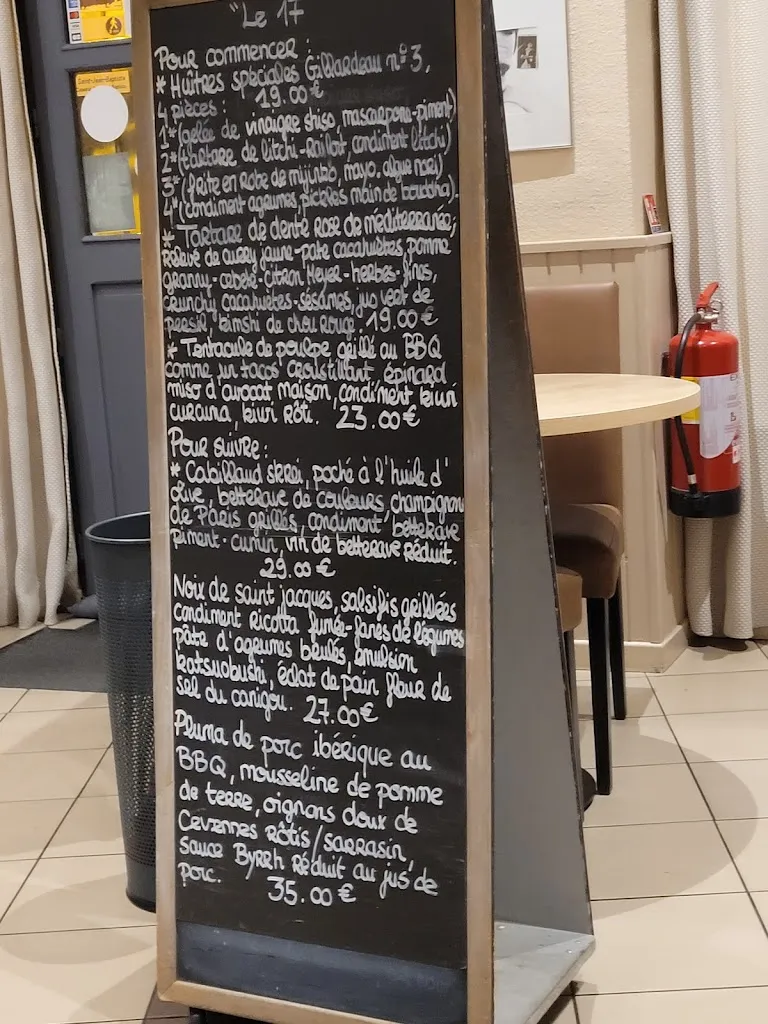 "Le 17
Pour commencer :
* Huîtres spéciales Gillardeau n°3,
4 pièces : 19.00 €
1* (gelée de vinaigre shiso mascarpone-piment)
2* (tartare de litchi-raifort, condiment litchi)
3* (frite en robe de mijinko, mayo, algue nori)
4* (condiment agrumes, pickles main de bouddha).
* Tartare de denté rose de méditerranée,
relevé de curry jaune-pate cacahuètes, pomme
granny-cébété-citron Meyer-herbes-fines,
crunchy cacahuètes-sésames, jus vert de
persil, kimshi de chou rouge. 19.00 €
* Tentacule de poulpe grillé au BBQ
comme un tacos croustillant, épinard
miso d'avocat maison, condiment kiwi
curcuma, kiwi rôti. 23.00 €
Pour suivre :
* Cabillaud skrei, poché à l'huile d'
olive, betterave de couleurs, champignon
de Paris grillés, condiment betterave
piment-cumin, vin de betterave réduit.
29.00 €
Noix de saint jacques, salsifis grillées
condiment ricotta fumée-fanes de légumes
pâte d'agrumes brulés, émulsion
katsuobushi, éclat de pain fleur de
sel du canigou. 27.00 €
Pluma de porc ibérique au
BBQ, mousseline de pomme
de terre, oignons doux de
Cevennes rôtis/sarrasin,
Sauce Byrrh réduit au jus de
porc. 35.00 €